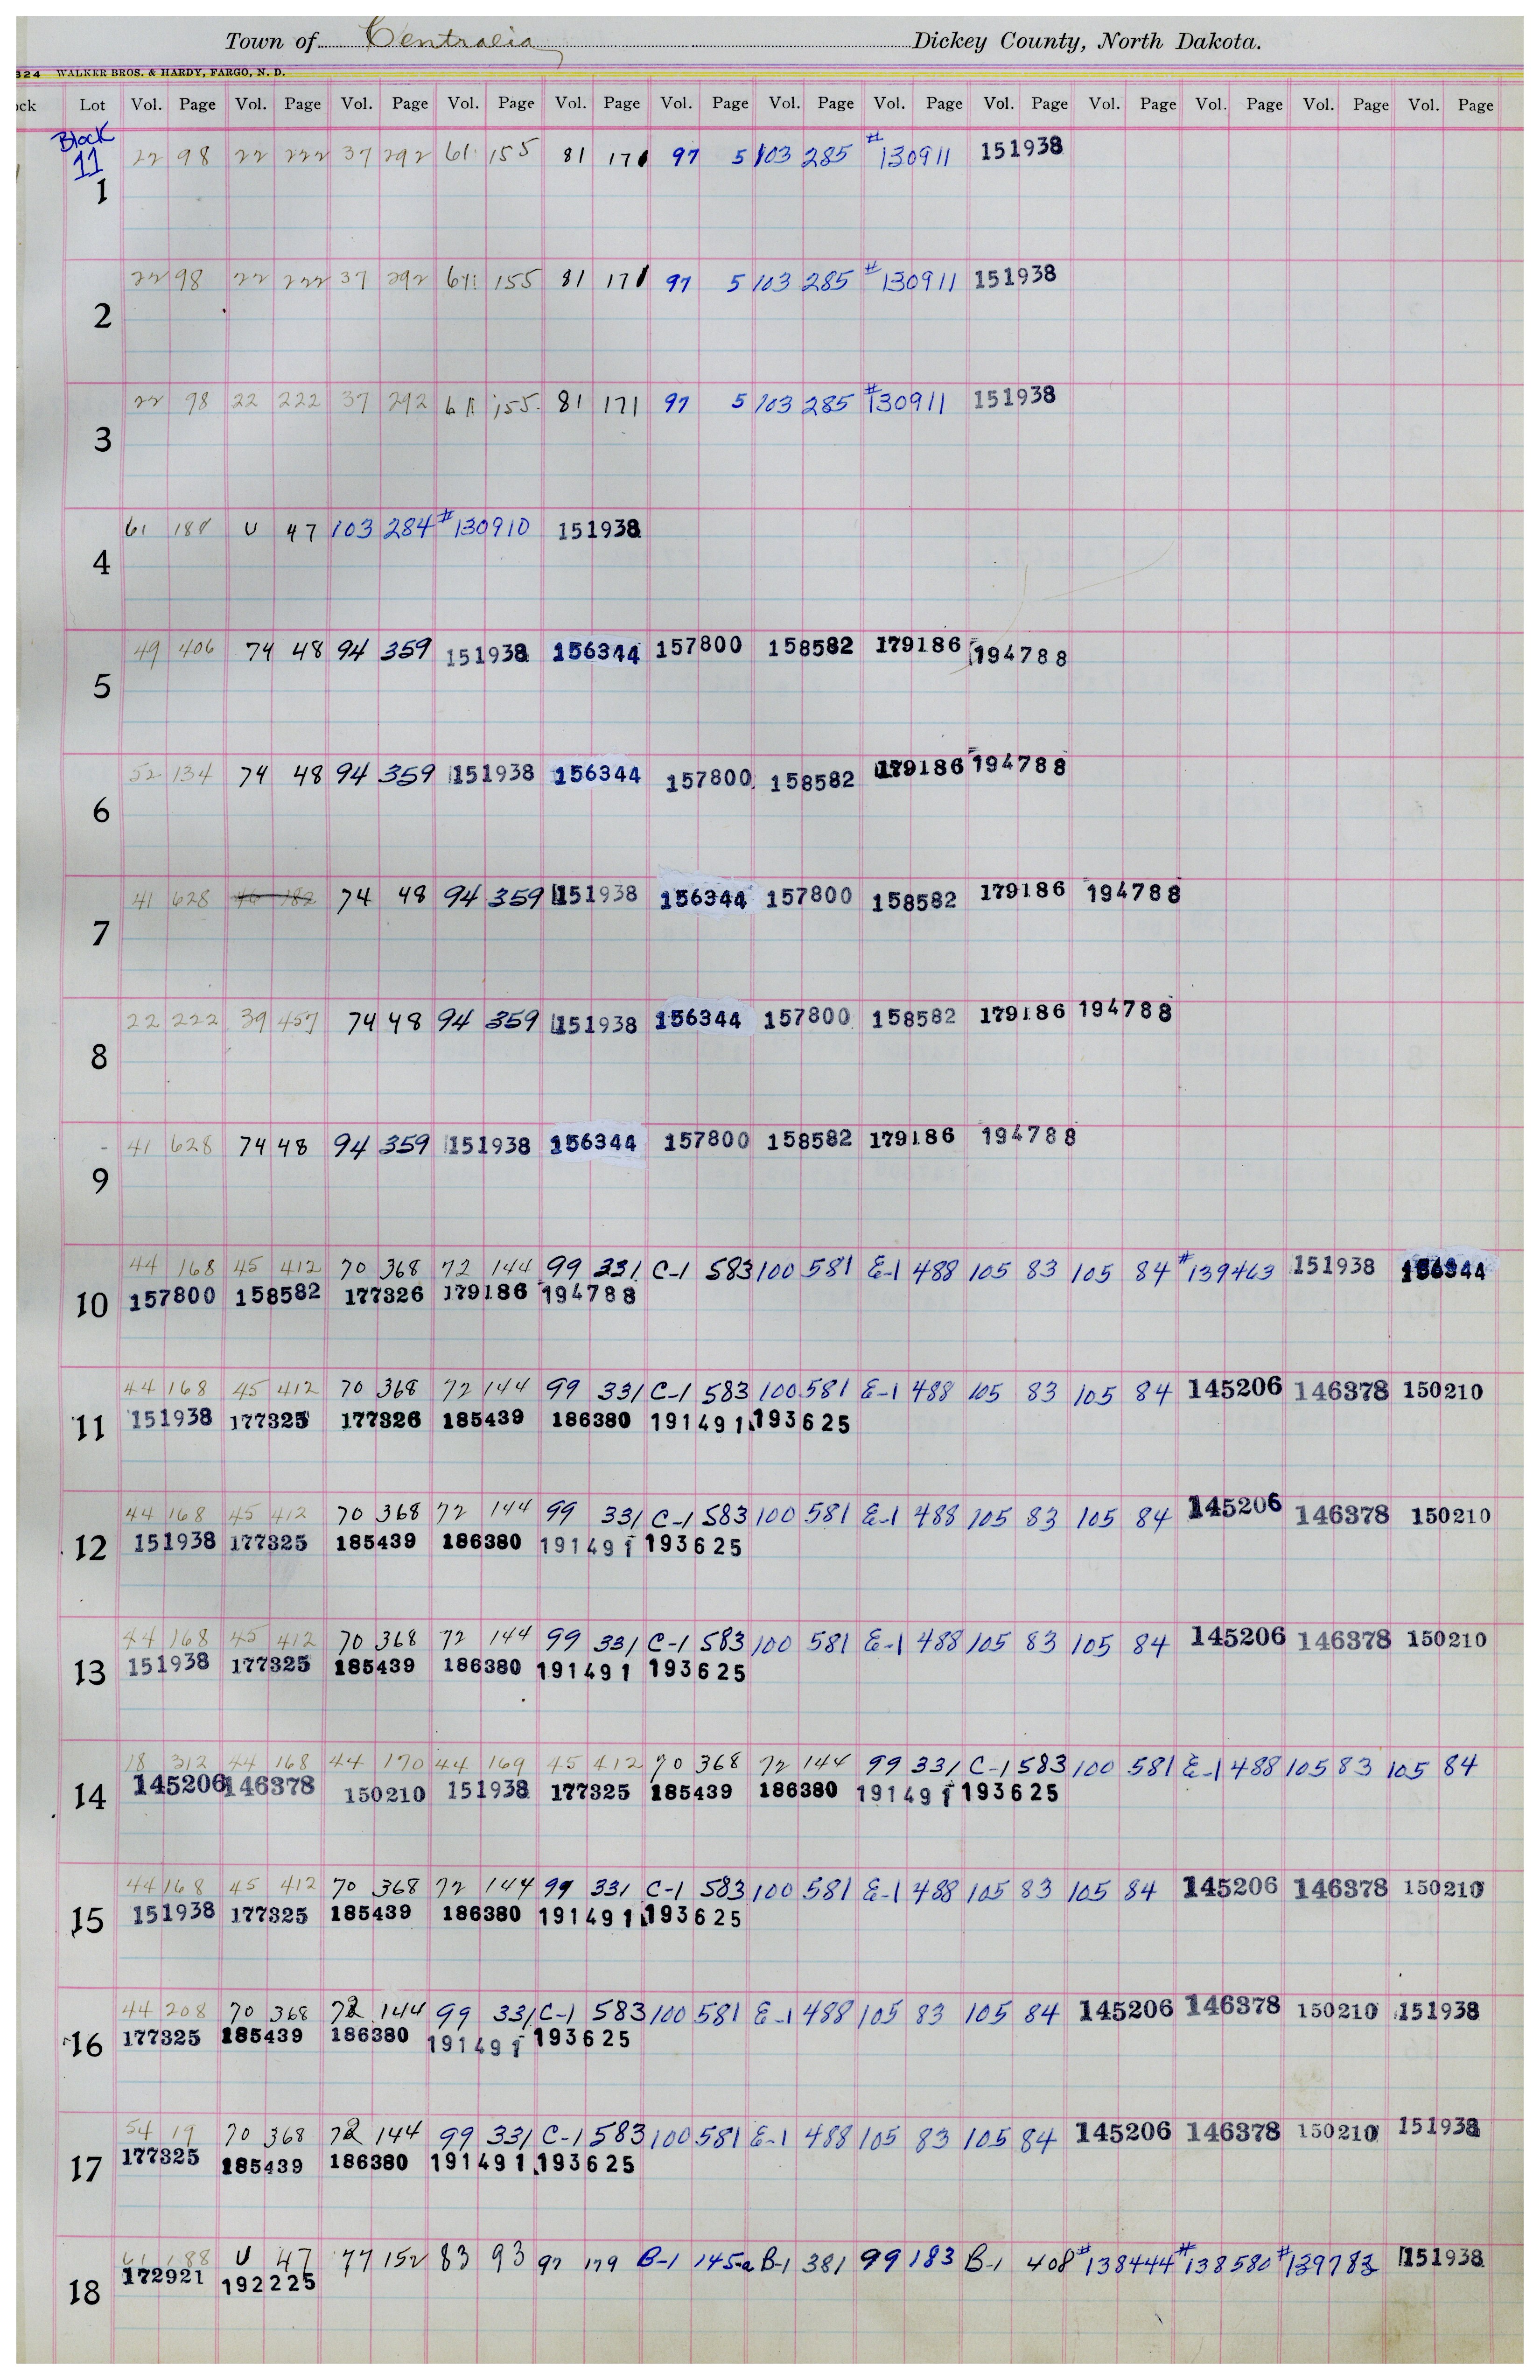 Town of Centralia Dickey County, North Dakota.
324 WALKER BROS. & HARDY, FARGO, N. D.
ock Lot Vol. Page Vol. Page Vol. Page Vol. Page Vol. Page Vol. Page Vol. Page Vol. Page Vol. Page Vol. Page Vol. Page Vol. Page Vol. Page
Block
11
22 98 22 222 37 292 61 155 81 171 97 5 103 285 #130911 151938
1
22 98 22 222 37 292 61 155 81 171 97 5 103 285 #130911 151938
2
22 98 22 222 37 292 61 155 81 171 97 5 103 285 #130911 151938
3
61 188 U 47 103 284 #130910 151938
4
49 406 74 48 94 359 151938 156344 157800 158582 179186 194788
5
52 134 74 48 94 359 151938 156344 157800 158582 179186 194788
6
41 628 46 182 74 48 94 359 151938 156344 157800 158582 179186 194788
7
22 222 39 457 74 48 94 359 151938 156344 157800 158582 179186 194788
8
41 628 74 48 94 359 151938 156344 157800 158582 179186 194788
9
44 168 45 412 70 368 72 144 99 331 C-1 583 100 581 E-1 488 105 83 105 84 #139463 151938 156344
10 157800 158582 177326 179186 194788
44 168 45 412 70 368 72 144 99 331 C-1 583 100 581 E-1 488 105 83 105 84 145206 146378 150210
11 151938 177325 177326 185439 186380 191491 193625
44 168 45 412 70 368 72 144 99 331 C-1 583 100 581 E-1 488 105 83 105 84 145206 146378 150210
12 151938 177325 185439 186380 191491 193625
44 168 45 412 70 368 72 144 99 331 C-1 583 100 581 E-1 488 105 83 105 84 145206 146378 150210
13 151938 177325 185439 186380 191491 193625
18 312 44 168 44 170 44 169 45 412 70 368 72 144 99 331 C-1 583 100 581 E-1 488 105 83 105 84
14 145206 146378 150210 151938 177325 185439 186380 191491 193625
44 168 45 412 70 368 72 144 99 331 C-1 583 100 581 E-1 488 105 83 105 84 145206 146378 150210
15 151938 177325 185439 186380 191491 193625
44 208 70 368 72 144 99 331 C-1 583 100 581 E-1 488 105 83 105 84 145206 146378 150210 151938
16 177325 185439 186380 191491 193625
54 19 70 368 72 144 99 331 C-1 583 100 581 E-1 488 105 83 105 84 145206 146378 150210 151938
17 177325 185439 186380 191491 193625
61 188 U 47 77 152 83 93 97 179 B-1 145a B-1 381 99 183 B-1 408 #138444 #138580 #139783 151938
18 172921 192225